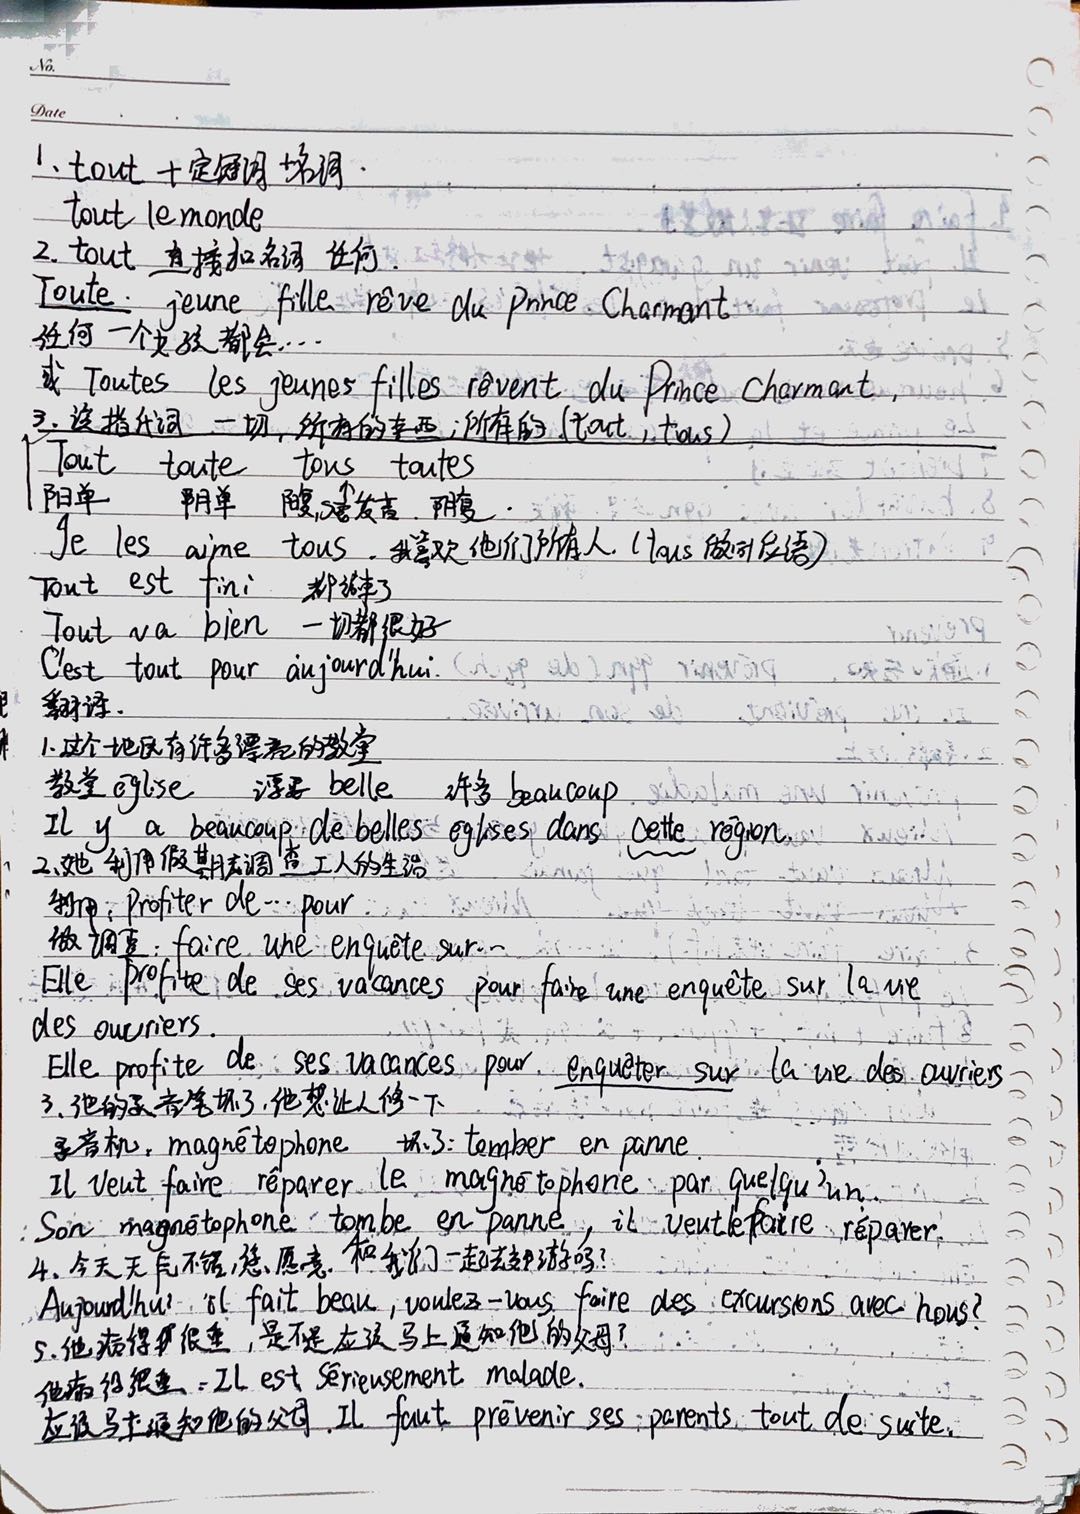 No.
Date
1、tout + 定冠词 + 名词.
tout le monde
2. tout 直接加名词 任何.
Toute. jeune fille rêve du Prince Charmant
任何一个女孩都会....
或 Toutes les jeunes filles rêvent du Prince Charmant.
3. 泛指代词 一切, 所有的东西; 所有的 (tout, tous)
Tout toute tous toutes
阳单 阴单 阳复, s要发音. 阴复.
Je les aime tous. 我喜欢他们所有人. (tous 做同位语)
Tout est fini 都结束了
Tout va bien 一切都很好
C'est tout pour aujourd'hui.
翻译.
1.这个地区有许多漂亮的教堂
教堂 église 漂亮 belle 许多 beaucoup
Il y a beaucoup de belles églises dans cette région.
2.她利用假期去调查工人的生活
利用: Profiter de... pour
做调查: faire une enquête sur...
Elle profite de ses vacances pour faire une enquête sur la vie
des ouvriers.
Elle profite de ses vacances pour enquêter sur la vie des ouvriers
3、他的录音笔坏了,他想让人修一下
录音机: magnétophone 坏了: tomber en panne.
Il veut faire réparer le magnétophone par quelqu'un.
Son magnétophone tombe en panne, il veut le faire réparer.
4、今天天气不错,您愿意和我们一起去郊游吗?
Aujourd'hui il fait beau, voulez-vous faire des excursions avec nous?
5. 他病得很重, 是不是应该马上通知他的父母?
他病得很重: Il est sérieusement malade.
应该马上通知他的父母. Il faut prévenir ses parents tout de suite.